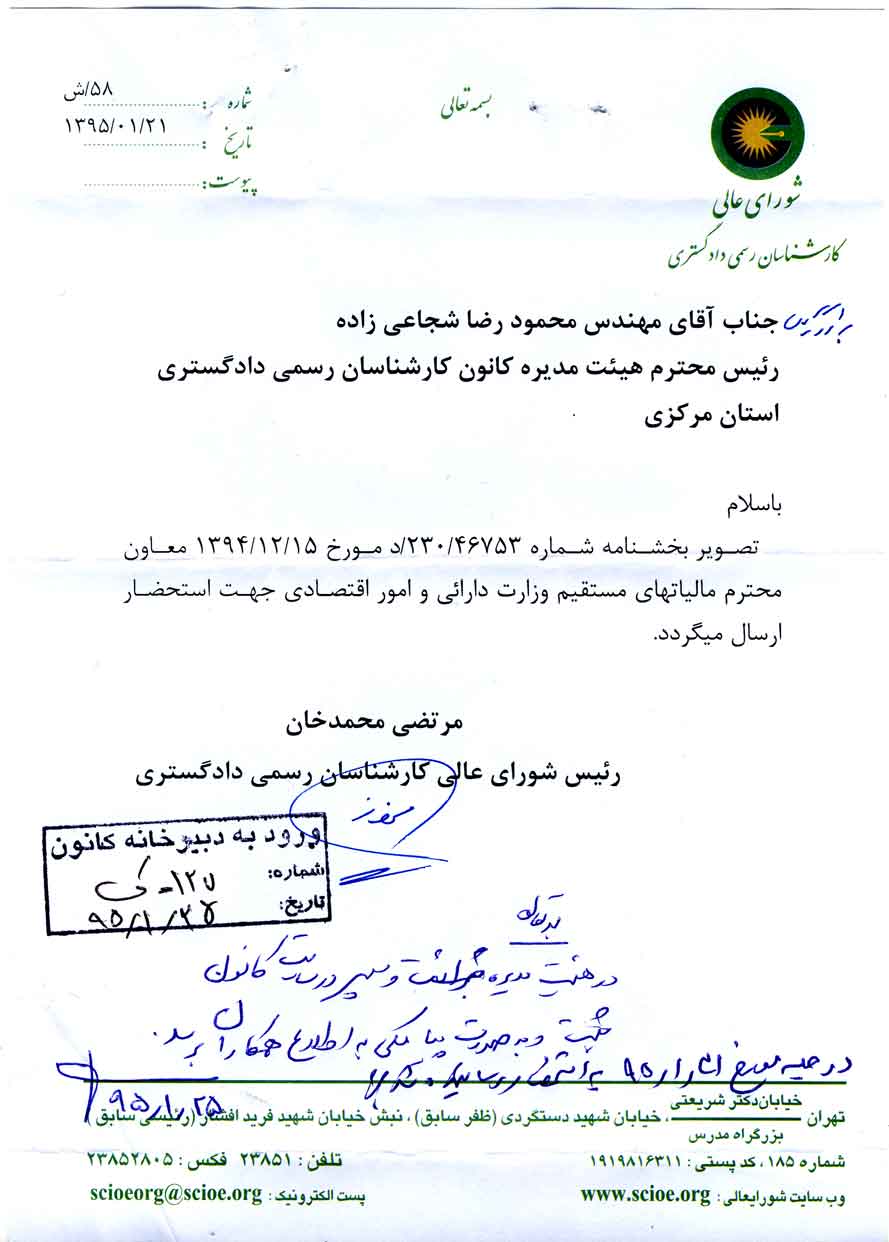 بسمه تعالی
شماره : ۵۸/ش
تاریخ : ۱۳۹۵/۰۱/۲۱
پیوست :
شورای عالی
کارشناسان رسمی دادگستری
جناب آقای مهندس محمود رضا شجاعی زاده
رئیس محترم هیئت مدیره کانون کارشناسان رسمی دادگستری
استان مرکزی
باسلام
تصویر بخشنامه شماره ۲۳۰/۴۶۷۵۳/د مورخ ۱۳۹۴/۱۲/۱۵ معاون
محترم مالیاتهای مستقیم وزارت دارائی و امور اقتصادی جهت استحضار
ارسال میگردد.
مرتضی محمدخان
رئیس شورای عالی کارشناسان رسمی دادگستری
ورود به دبیرخانه کانون
شماره: ۱۲۷-ک
تاریخ: ۹۵/۱/۲۵
در هیئت مدیره قرائت و سپس در سایت کانون
ثبت و به صورت پیامکی به اطلاع همکاران برسد.
۹۵/۱/۲۵
تهران خیابان دکتر شریعتی
بزرگراه مدرس ، خیابان شهید دستگردی (ظفر سابق) ، نبش خیابان شهید فرید افشار (رئیسی سابق)
شماره ۱۸۵ ، کد پستی : ۱۹۱۹۸۱۶۳۱۱ تلفن : ۲۳۸۵۱ فکس : ۲۳۸۵۲۸۰۵
وب سایت شورایعالی : www.scioe.org پست الکترونیک : scioeorg@scioe.org